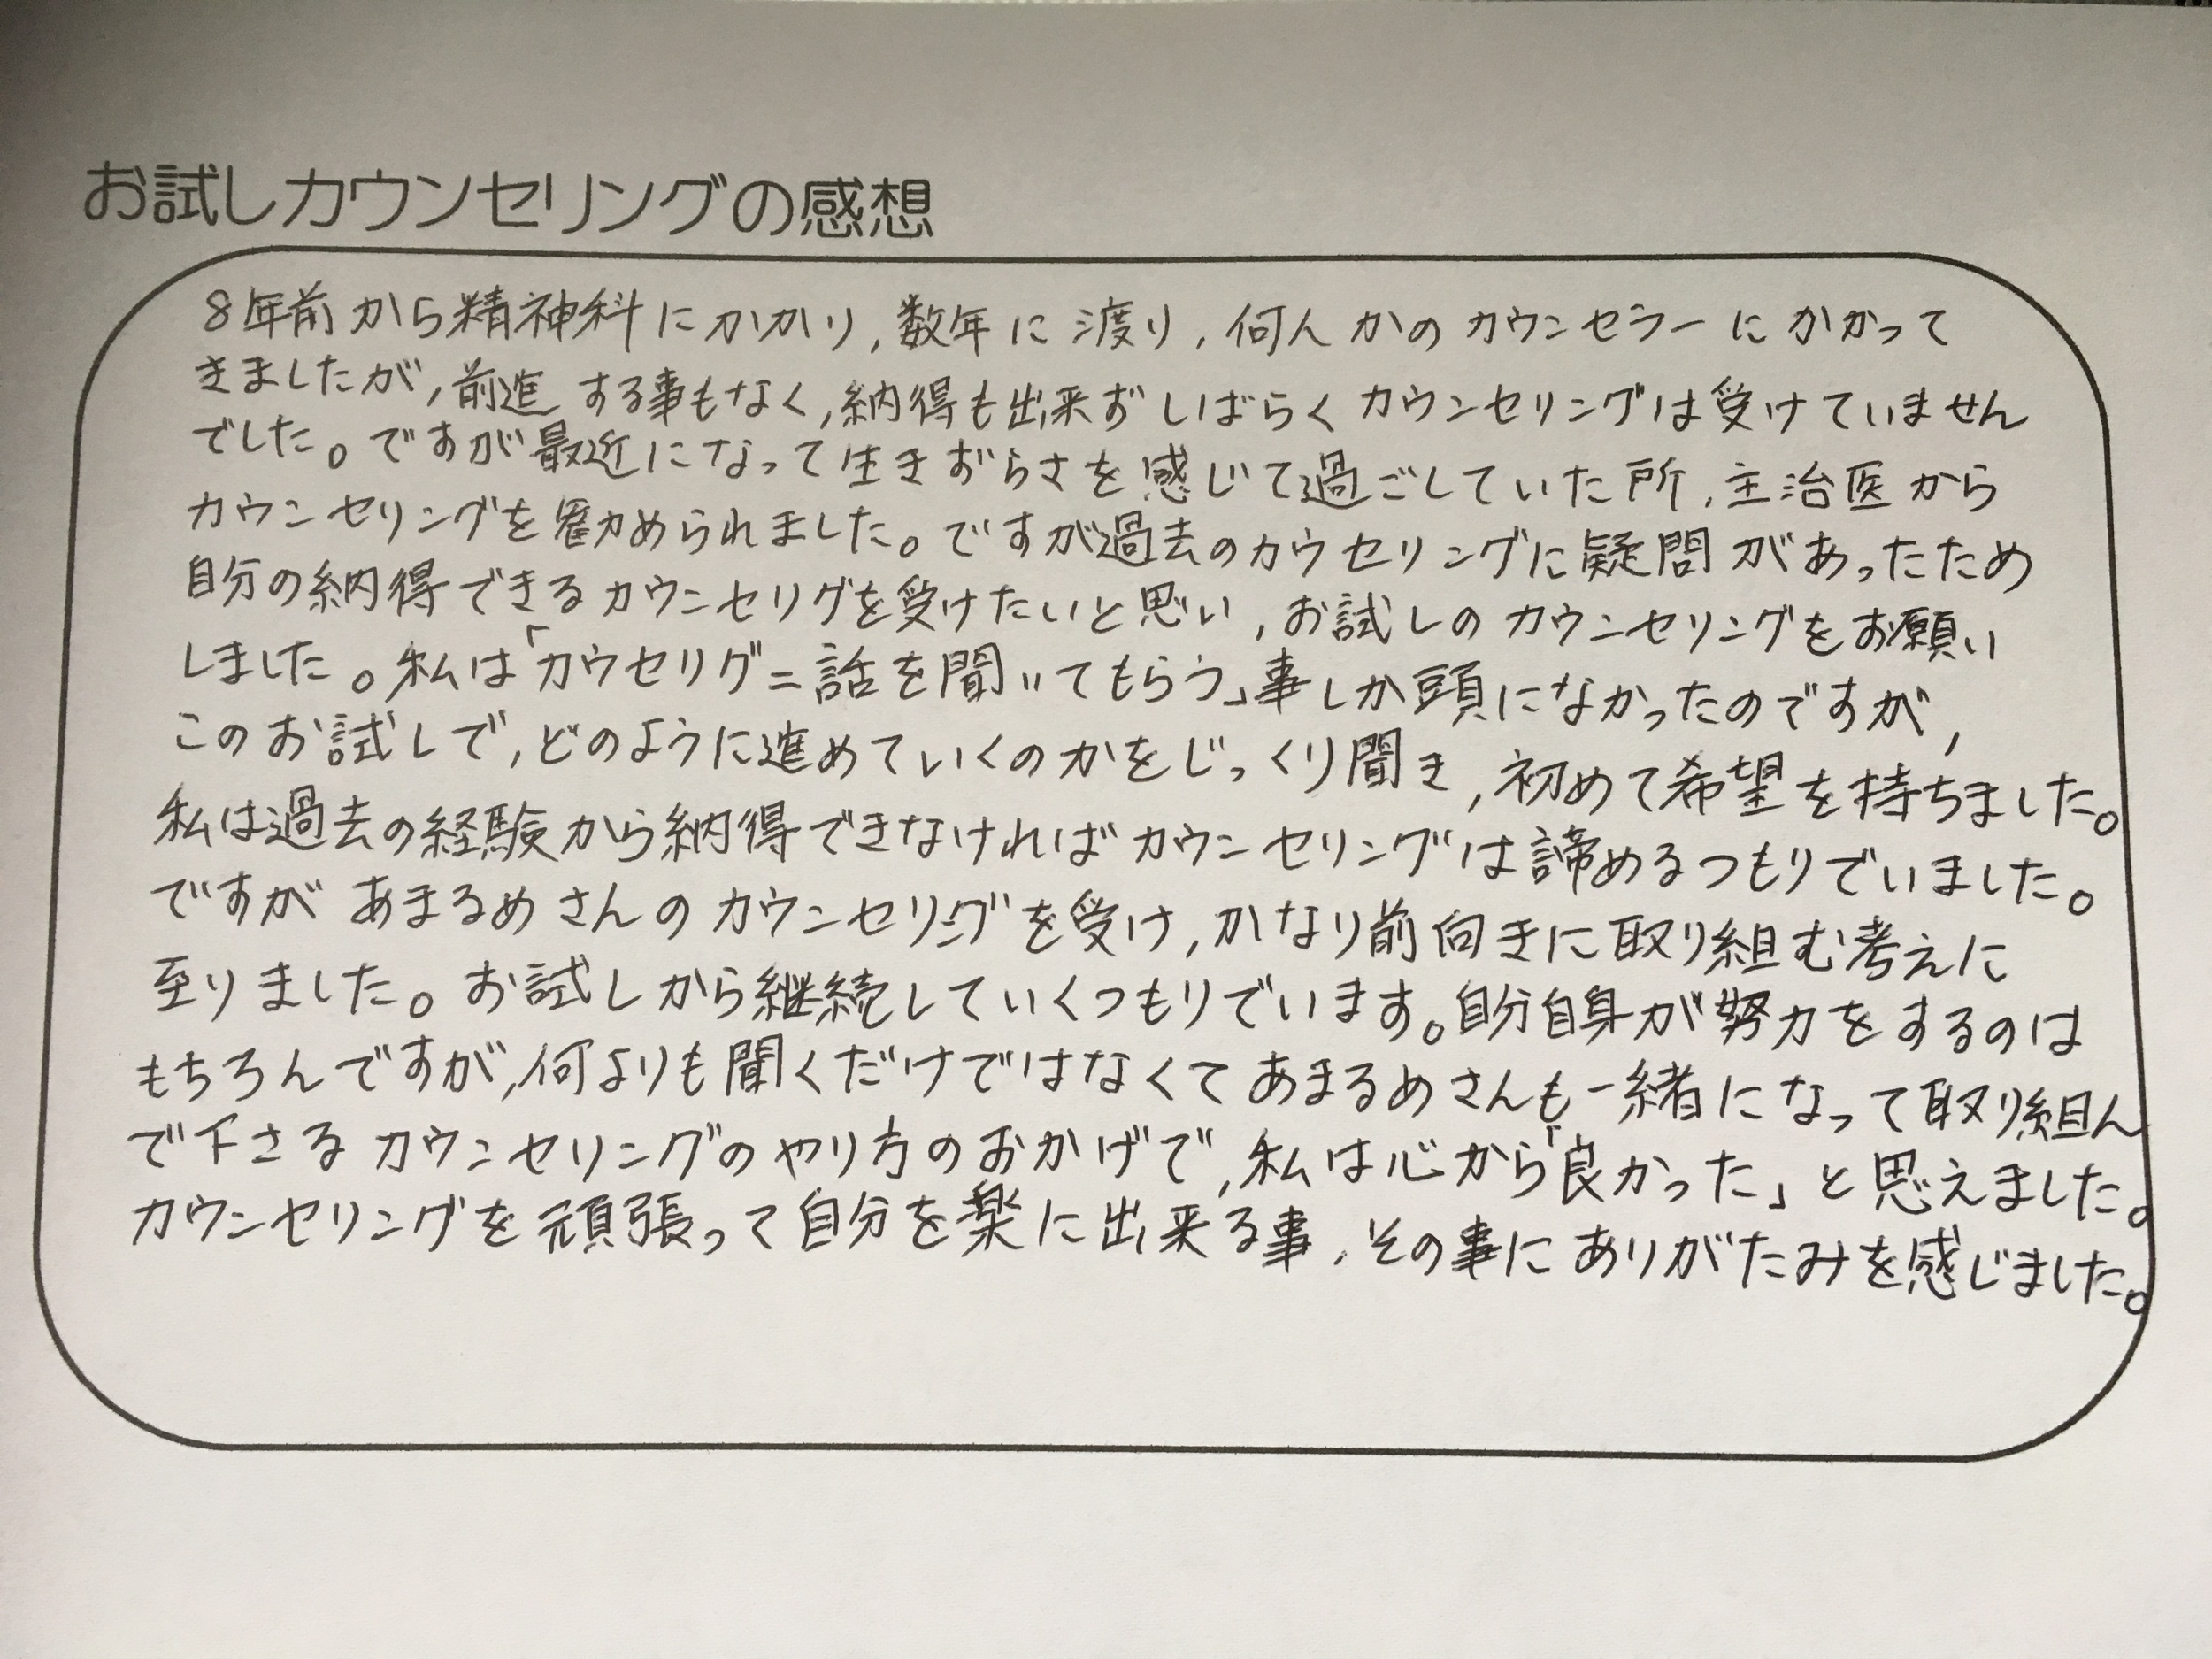 お試しカウンセリングの感想
8年前から精神科にかかり,数年に渡り,何人かのカウンセラーにかかって
きましたが,前進する事もなく,納得も出来ずしばらくカウンセリングは受けていません
でした。ですが最近になって生きずらさを感じて過ごしていた所,主治医から
カウンセリングを勧められました。ですが過去のカウセリングに疑問があったため
自分の納得できるカウンセリグを受けたいと思い,お試しのカウンセリングをお願い
しました。私は「カウセリグ=話を聞いてもらう」事しか頭になかったのですが,
このお試しで,どのように進めていくのかをじっくり聞き,初めて希望を持ちました。
私は過去の経験から納得できなければカウンセリングは諦めるつもりでいました。
ですがあまるめさんのカウンセリングを受け,かなり前向きに取り組む考えに
至りました。お試しから継続していくつもりでいます。自分自身が努力をするのは
もちろんですが,何よりも聞くだけではなくてあまるめさんも一緒になって取り組ん
で下さるカウンセリングのやり方のおかげで,私は心から「良かった」と思えました。
カウンセリングを頑張って自分を楽に出来る事,その事にありがたみを感じました。